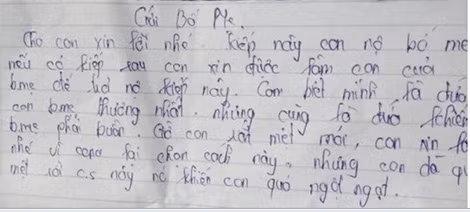 Gửi Bố Mẹ.
Cho con xin lỗi nhé. Kiếp này con nợ bố mẹ
nếu có kiếp sau con xin được làm con của
bmẹ để trả nợ kiếp này. Con biết mình là đứa
con bmẹ thương nhất. nhưng cũng là đứa khiến
bmẹ phải buồn. Giờ con rất mệt mỏi, con xin lỗi
nhé vì con lại chọn cách này, nhưng con đã
mệt và c.s này nó khiến con quá ngột ngạt.